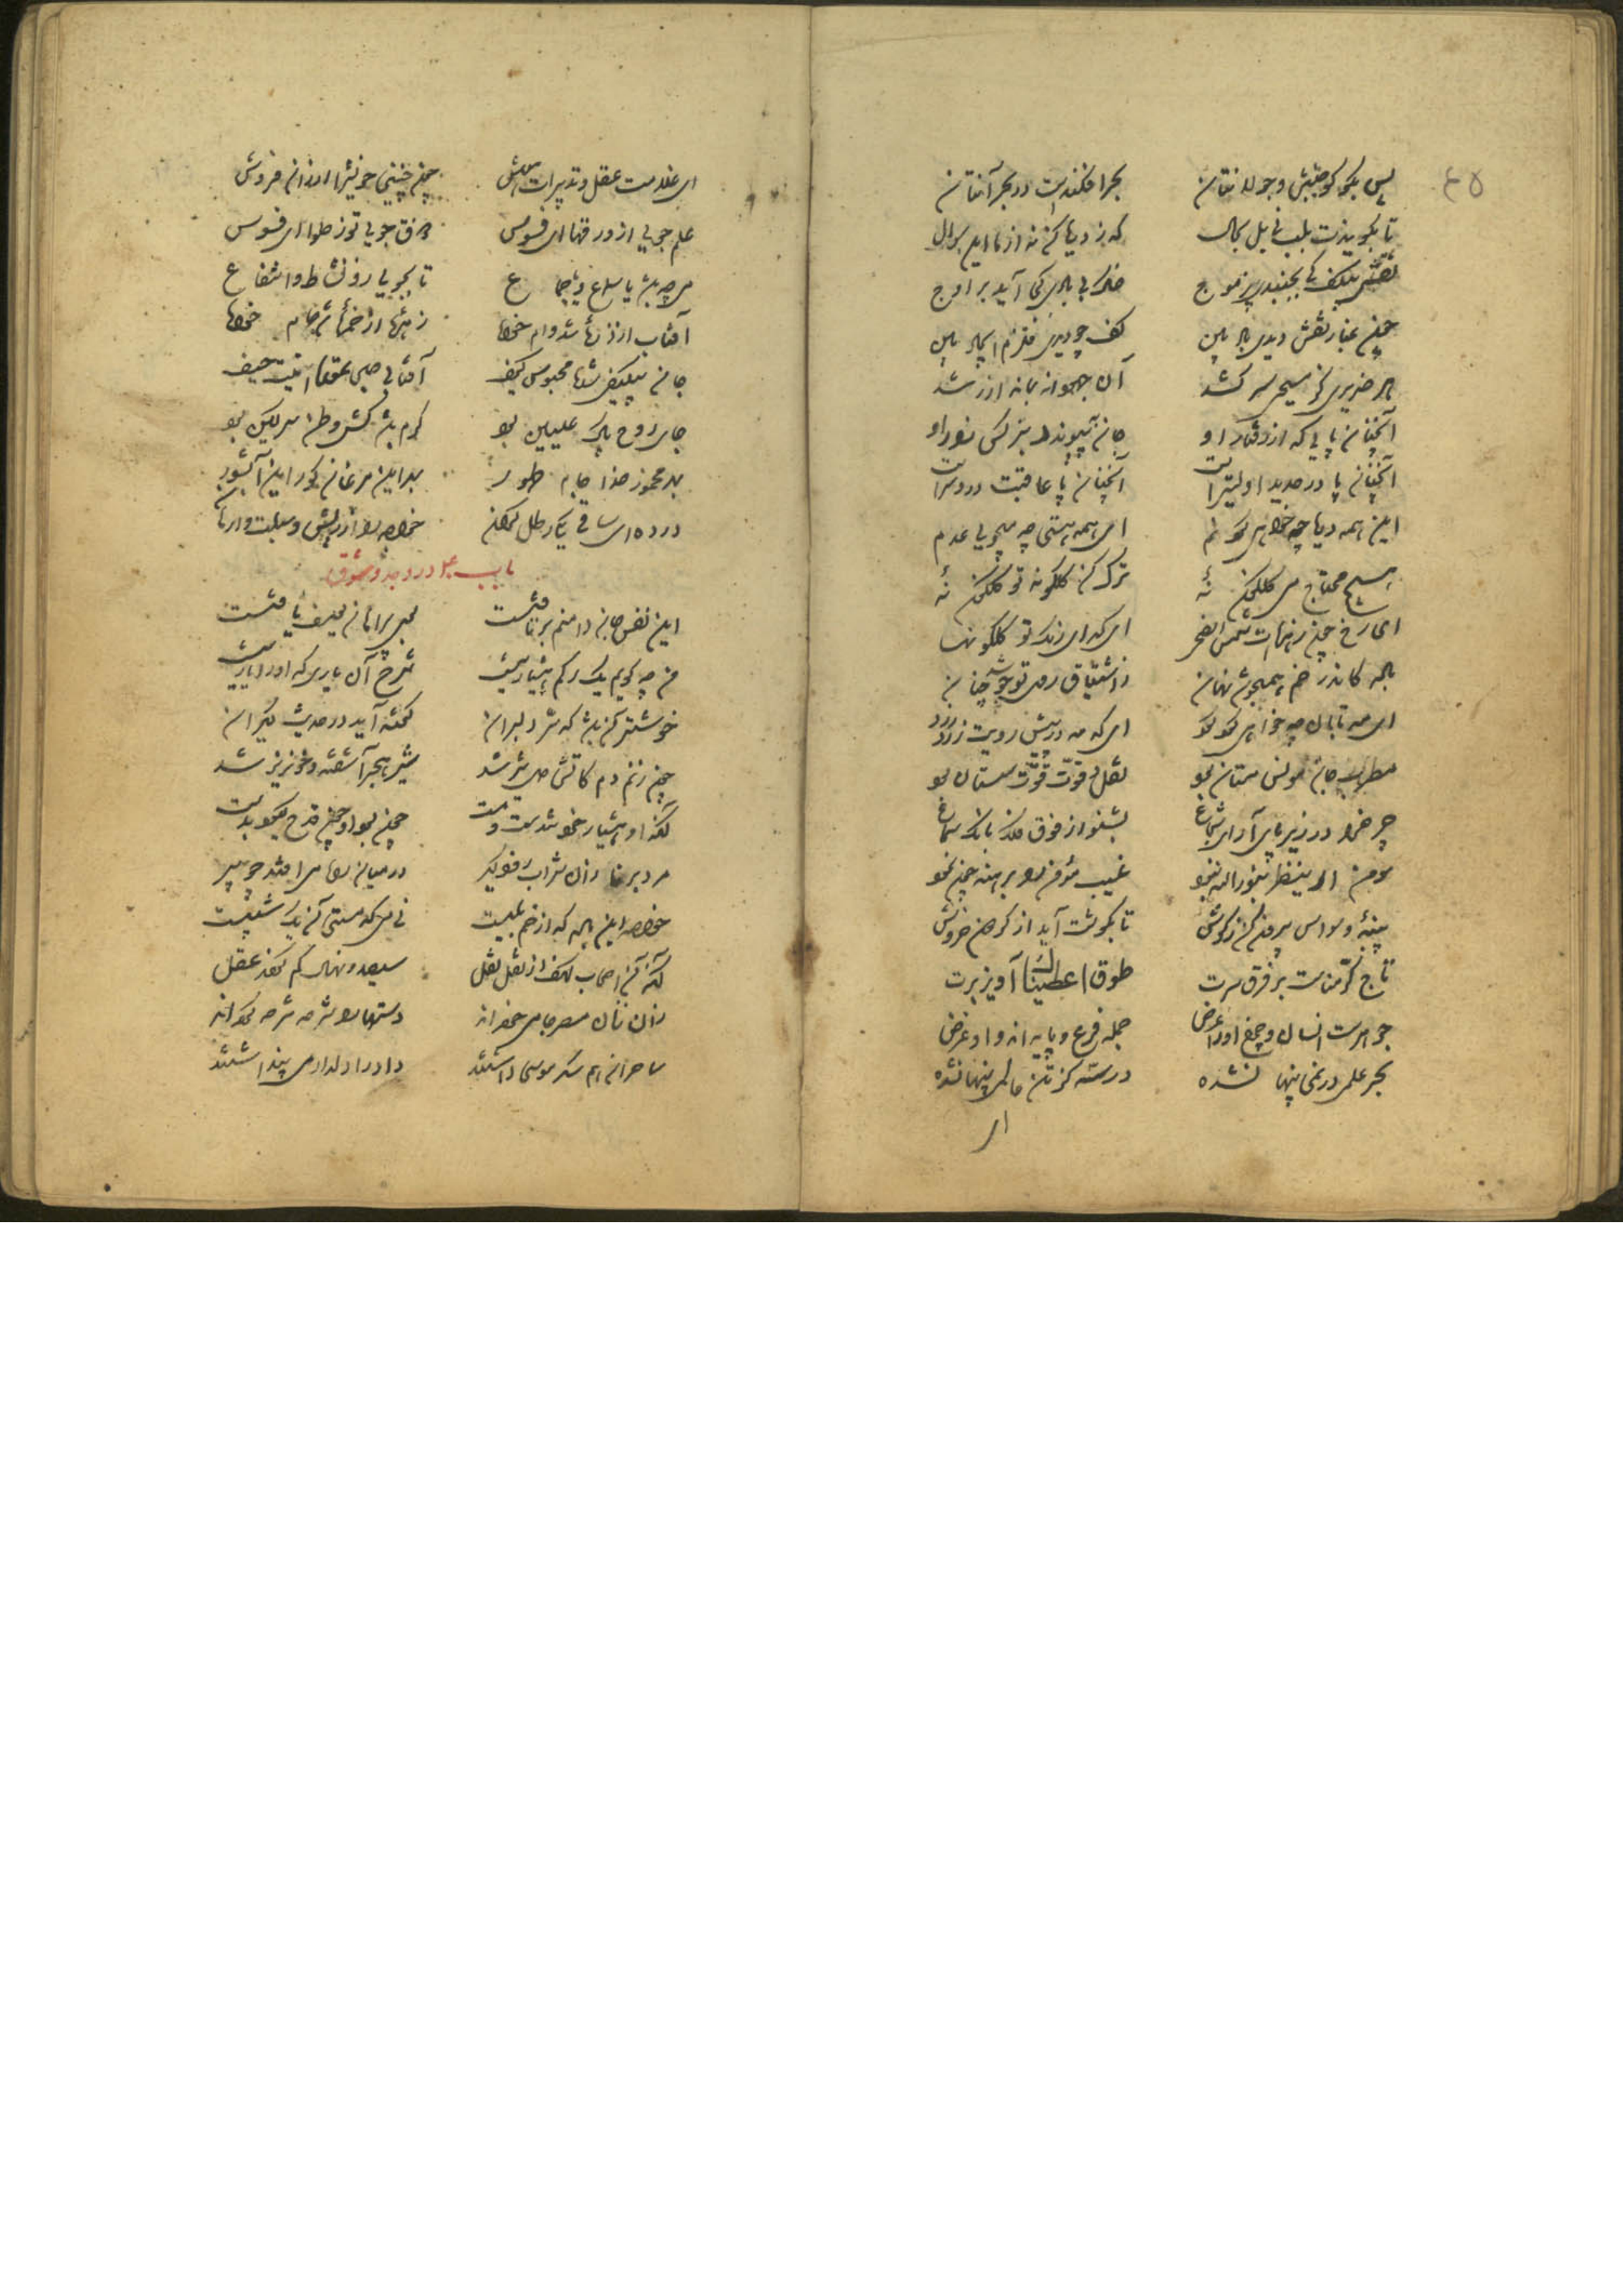 ۴۵
پس بگو کو جنبش و جولانتان بحر افکندست در بحرآنتان
تا بگویندت بلب نی بل بحال که ز دریا کن نه از ما این سوال
نقش چون کف کی بجنبد بی ز موج خاک بی بادی کی آید بر اوج
چون غبار نقش دیدی باد بین کف چو دیدی قلزم ایجاد بین
هر ضریری کز مسیحی سر کشد آن جهودانه بماند از رشد
آنچنان پایی که از رفتار او جان نپیوندد بنرگس زار او
آنچنان پا در حدید اولیترست آنچنان پا عاقبت درد سرست
این همه دریا چه خواهی کرد نم ای همه هستی چه میجویی عدم
هیچ محتاج می گلگون نهٔ ترک کن گلگونه تو گلگون نهٔ
ای رخ چون زهره‌ات شمس الضحی ای گدای رنگ تو گلگونها
باده کاندر خم همیجوشد نهان ز اشتیاق روی تو جوشد چنان
ای مه تابان چه خواهی کرد گرد ای که مه در پیش رویت زرد
مطرب جان مونس مستان بود نقل و قوت و قوت مستان بود
چرخ را در زیر پای آر ای شجاع بشنو از فوق فلک بانگ سماع
مومن ار ینظر بنور الله نبود غیب مومن را برهنه چون نمود
پنبهٔ وسواس بیرون کن ز گوش تا بگوشت آید از گردون خروش
تاج کرمناست بر فرق سرت طوق اعطیناک آویز برت
جوهرست انسان و چرخ او را عرض جمله فرع و پایه‌اند و او غرض
بحر علمی در نمی پنهان شده در سه گز تن عالمی پنهان شده
ای
ای غلامت عقل و تدبیرات هوش چون چنینی خویش را ارزان فروش
علم جویی از ورقها ای فسوس ذوق جویی تو ز حلوا ای فسوس
می چه باشد یا سماع و یا جماع تا بجویی زو نشاط و انتفاع
آفتاب از ذرهٔ شد وام خواه زهرهٔ از خمرهٔ شد جام خواه
جان بی‌کیفی شده محبوس کیف آفتابی حبس عقده اینت حیف
جای روح پاک علیین بود کرم باشد کش وطن سرگین بود
بهر مخمور خدا جام طهور بهر این مرغان کور این آب شور
درده ای ساقی یکی رطل گران خواجه را از ریش و سبلت وارهان
باب در وجد و شوق
این نفس جان دامنم برتافتست بوی پیراهان یوسف یافتست
من چه گویم یک رگم هشیار نیست شرح آن یاری که او را یار نیست
خوشتر آن باشد که سر دلبران گفته آید در حدیث دیگران
چون زنم دم کآتش دل تیز شد شیر هجر آشفته و خونریز شد
آنکه او هشیار خود تندست و مست چون بود او چون قدح گیرد بدست
مرد برنا زان شراب زودگیر در میان راه می افتد چو پیر
خاصه این باده که از خم بلیست نی می که مستی آن یک شبیست
آنکه آن اصحاب کهف از نقل نقل سیصد و نه سال گم کردند عقل
زان زنان مصر جامی خورده‌اند دستها را شرحه شرحه کرده‌اند
ساحران هم سکر موسی داشتند دار را دلدار می پنداشتند